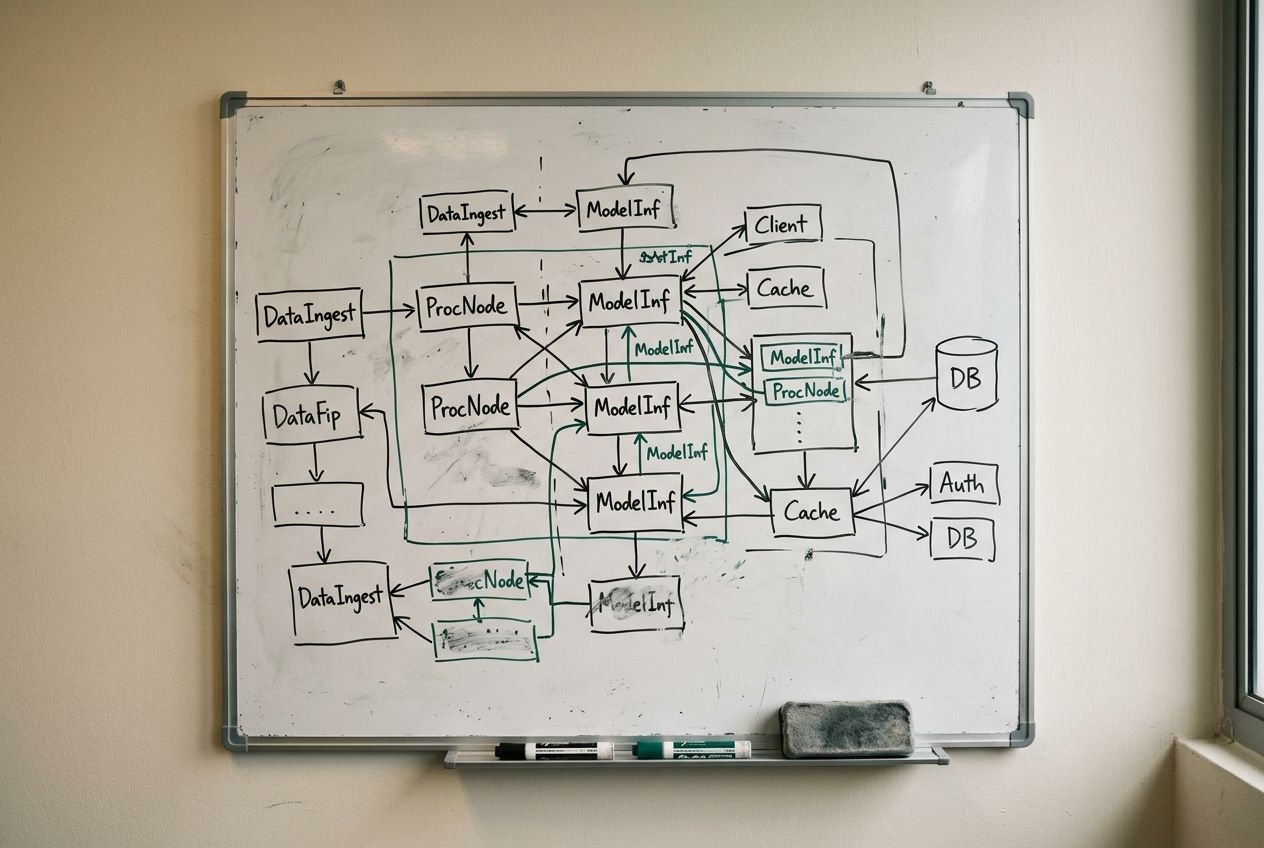 DataIngest
ModelInf
Client
DataIngest
ProcNode
ModelInf
Cache
ModelInf
ModelInf
ProcNode
DB
DataFip
ProcNode
ModelInf
ModelInf
....
ModelInf
Cache
Auth
DB
DataIngest
cNode
ModelInf